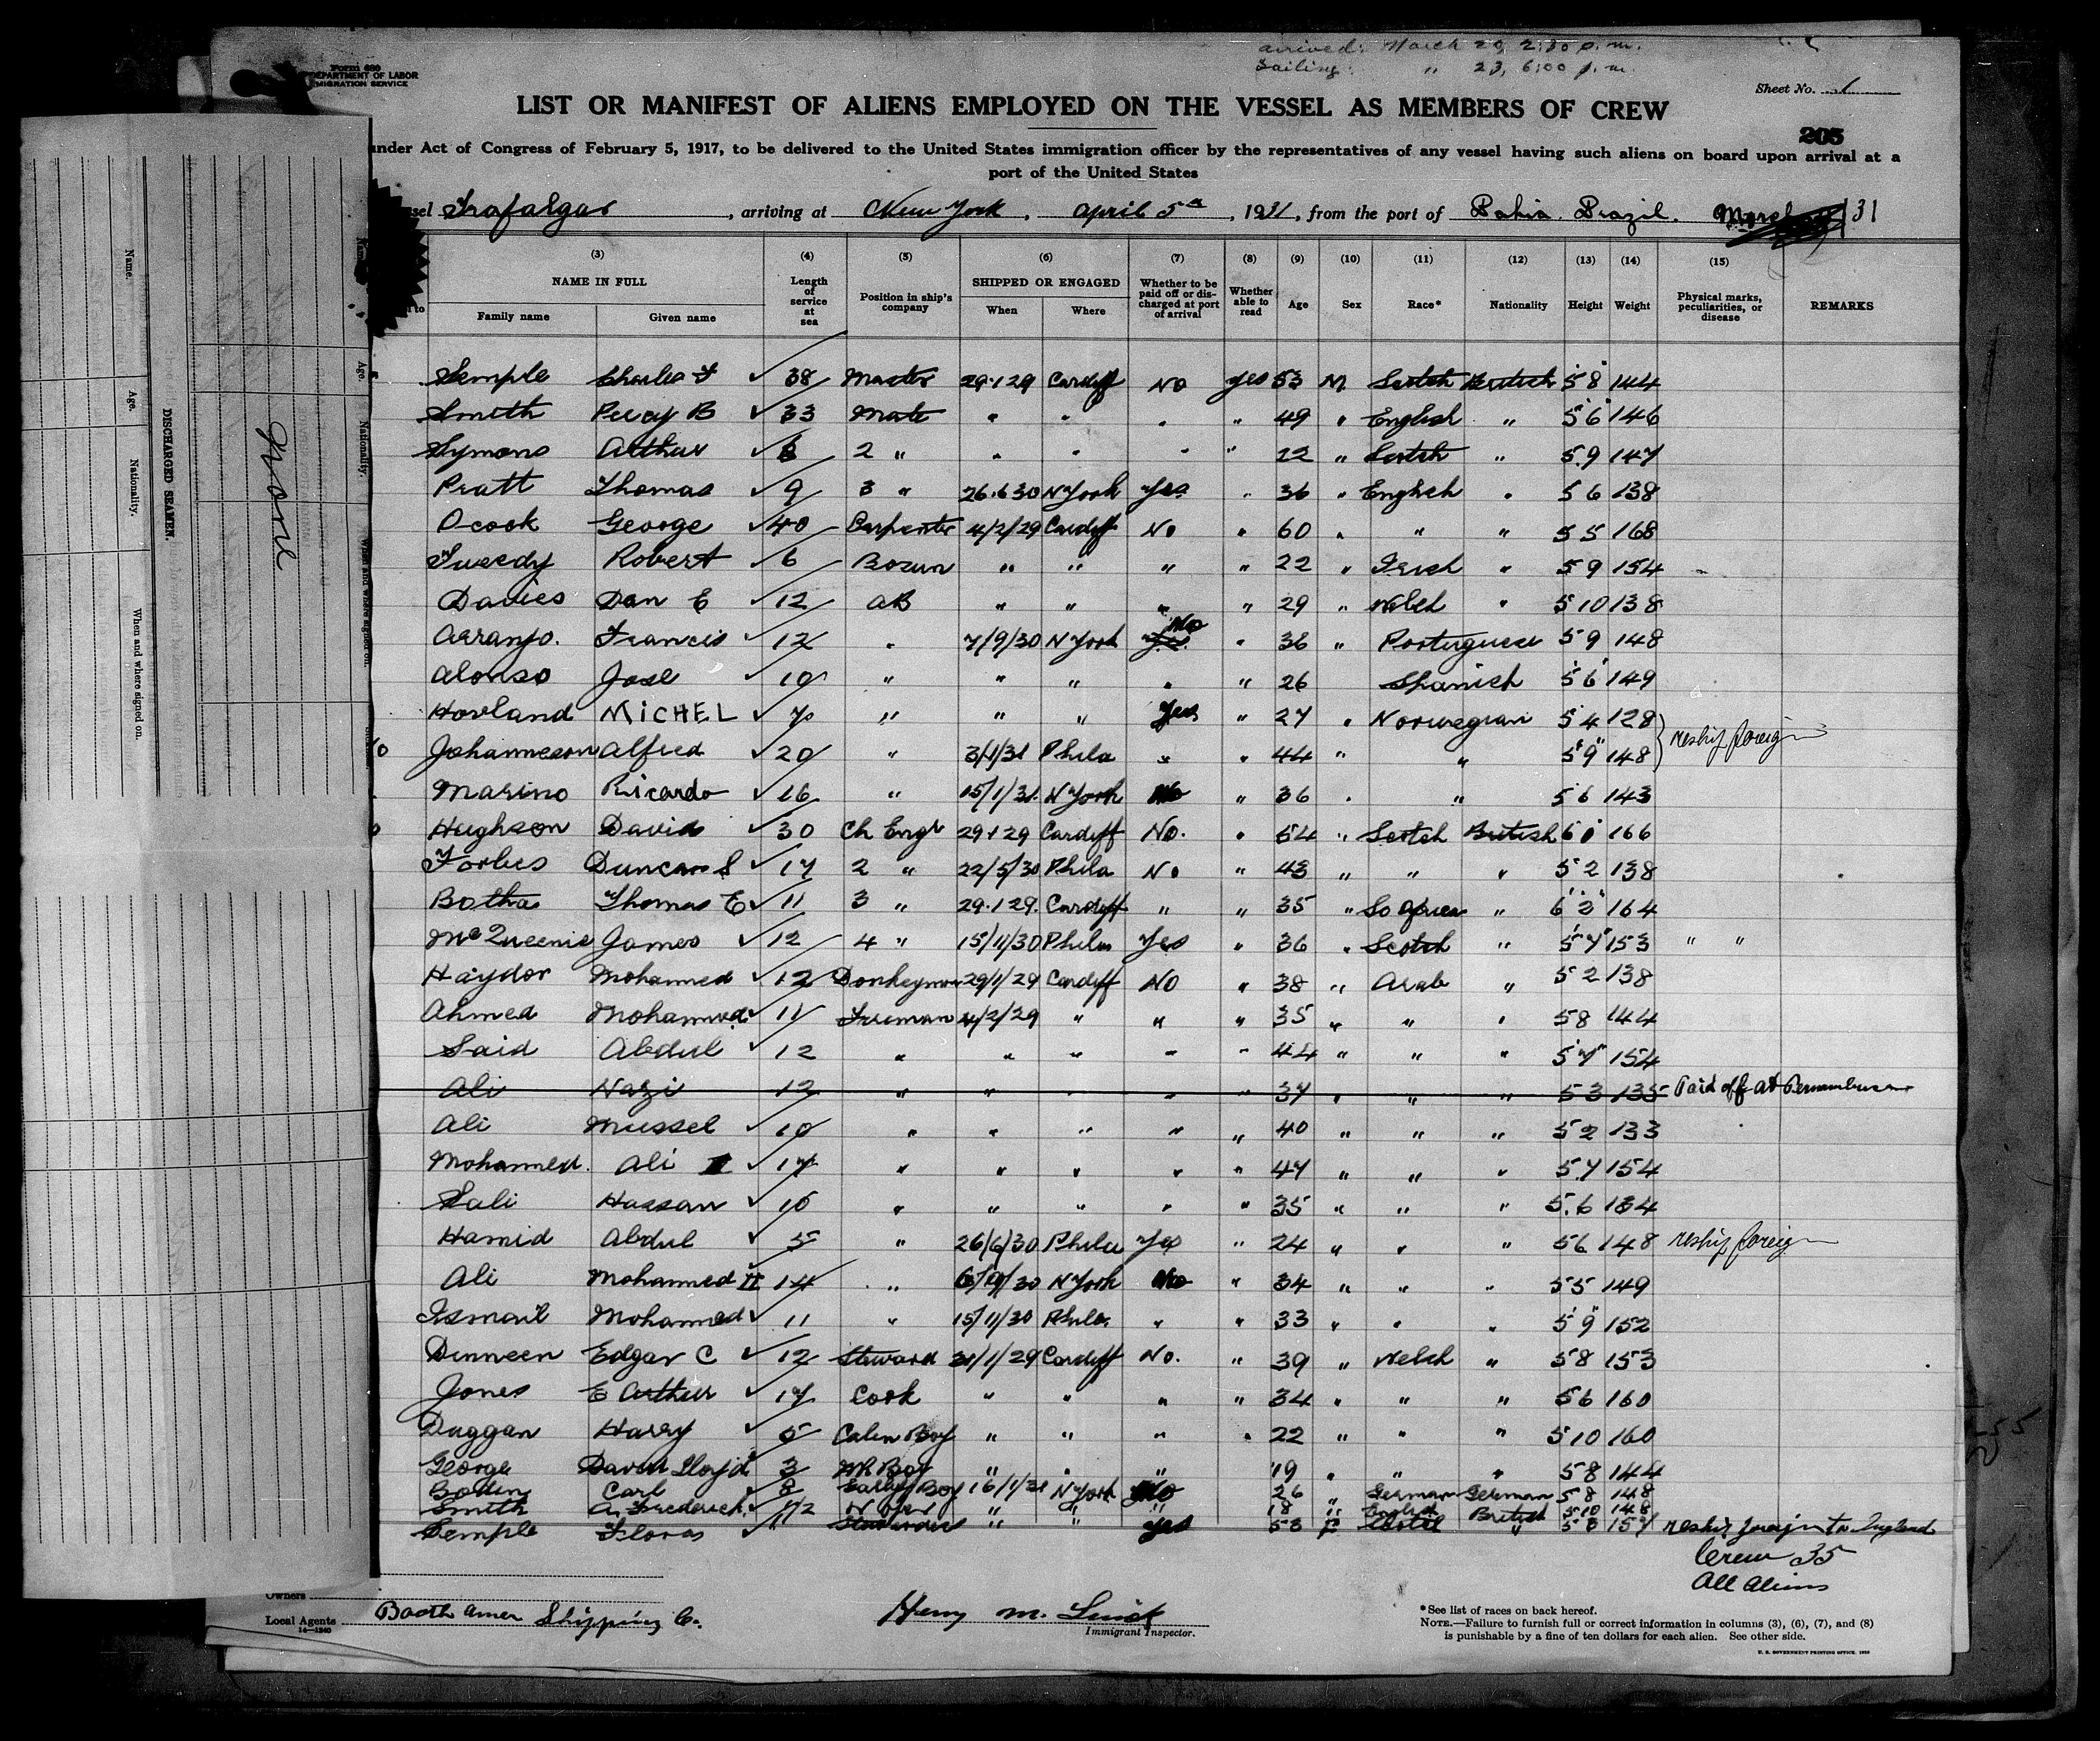 arrived: March 20, 2:30 p.m.
Sailing: " 23, 6:00 p.m.
Form 680
DEPARTMENT OF LABOR
IMMIGRATION SERVICE
Sheet No. 1
LIST OR MANIFEST OF ALIENS EMPLOYED ON THE VESSEL AS MEMBERS OF CREW
205
under Act of Congress of February 5, 1917, to be delivered to the United States immigration officer by the representatives of any vessel having such aliens on board upon arrival at a
port of the United States
sel Trafalgar, arriving at New York, April 5th, 1931, from the port of Bahia Brazil. 31
(3) (4) (5) (6) (7) (8) (9) (10) (11) (12) (13) (14) (15)
NAME IN FULL Length of service at sea Position in ship's company SHIPPED OR ENGAGED Whether to be paid off or discharged at port of arrival Whether able to read Age Sex Race* Nationality Height Weight Physical marks, peculiarities, or disease REMARKS
Family name Given name When Where
Semple Charles F 38 Master 29.1 29 Cardiff No Yes 53 M Scotch British 5 8 144
Smith Percy B 33 Mate " " " " 49 " English " 5 6 146
Symons Arthur 2 " " " " " 22 " Scotch " 5.9 147
Pratt Thomas 9 3 " 26.6 30 N York Yes " 36 " English " 5 6 138
Ocook George 40 Carpenter 4/2/29 Cardiff No " 60 " " " 5 5 168
Tweedy Robert 6 Bozun " " " " 22 " Irish " 5 9 154
Davies Dan E 12 AB " " " " 29 " Welch " 5 10 138
Arranjo. Francis 12 " 7/9/30 N York No " 36 " Portuguese 5 9 148
Alonso Jose 10 " " " " " 26 Spanich 5 6 149
Hovland MICHEL 7 " " " Yes " 27 " Norwegian 5 4 128 reship foreign
Johanneson Alfred 20 " 3/1/31 Phila " " 44 " " 5 9 148
Marino Ricardo 16 " 15/1/31. N York No " 36 " " 5 6 143
Hughson David 30 Ch Engr 29.1 29 Cardiff No. " 54 " Scotch British 6 0 166
Forbes Duncan S 17 2 " 22/5/30 Phila No " 43 " " " 5 2 138
Botha Thomas E 11 3 " 29.1 29. Cardiff " " 35 " So Africa " 6 3 164
McQueenie James 12 4 " 15/11/30 Phila Yes " 36 " Scotch " 5 7 153 " "
Haydor Mohamed 12 Donkeyman 29/1/29 Cardiff No " 38 " Arab " 5 2 138
Ahmed Mohammed 11 Fireman 4/2/29 " " " 35 " " " 5 8 144
Said Abdul 12 " " " " " 44 " " " 5 7 154
Ali Nazi 12 " " " " " 37 " " " 5 3 135 Paid off at Pernambuco
Ali Mussel 10 " " " " " 40 " " " 5 2 133
Mohammed. Ali 17 " " " " " 47 " " " 5.7 154
Sali Hassan 10 " " " " " 35 " " " 5.6 134
Hamid Abdul 5 " 26/6/30 Phila Yes " 24 " " " 5 6 148 reship foreign
Ali Mohammed II 14 " 6/9/30 N York No " 34 " " " 5 5 149
Ismail Mohammed 11 " 15/11/30 Phila " " 33 " " " 5 9 152
Dinneen Edgar C 12 Steward 31/1/29 Cardiff No. " 39 " Welch " 5 8 153
Jones E Arthur 17 Cook " " " " 34 " " " 5 6 160
Duggan Harry 5 Cabin Boy " " " " 22 " " " 5 10 160
George David Lloyd 3 MR Boy " " " 19 " " " 5 8 144
Carl 8 Galley Boy 16/1/31 N York No 26 " German German 5 8 148
Smith A. Frederick 1/2 " " " 18 " English British 5 10 148
Semple Floras Stewardess " " Yes 58 F Scotch " 5 8 157 reship foreign to England
Crew 35
All Aliens
Owners
Local Agents Booth Amer Shipping Co.
14—1240
Henry M.
Immigrant Inspector.
*See list of races on back hereof.
NOTE.—Failure to furnish full or correct information in columns (3), (6), (7), and (8)
is punishable by a fine of ten dollars for each alien. See other side.
U. S. GOVERNMENT PRINTING OFFICE
Name. Age. Nationality. When and where signed on.
DISCHARGED SEAMEN.
None
255